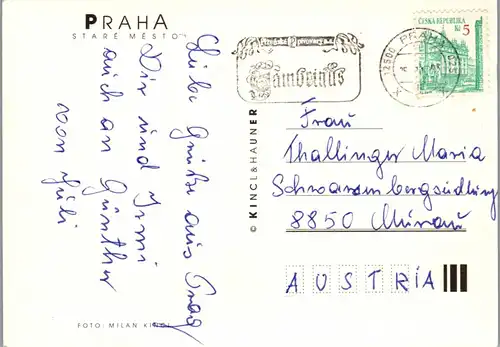 PRAHA
STARÉ MĚSTO
Liebe Grüße aus Prag
Dir und Irmi
auch an Günther
von Juli
FOTO: MILAN
© KINCL & HAUNER
Gambrinus
12500 PRAHA
ČESKÁ REPUBLIKA
Kč 5
Frau
Thallinger Maria
Schwarzenbergsiedlung
8850 Murau
AUSTRIA